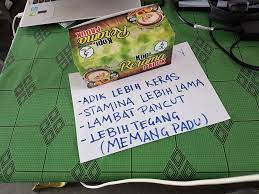 Kopi
Kopi
- ADIK LEBIH KERAS
- STAMINA LEBIH LAMA
- LAMBAT PANCUT
- LEBIH TEGANG
(MEMANG PADU)